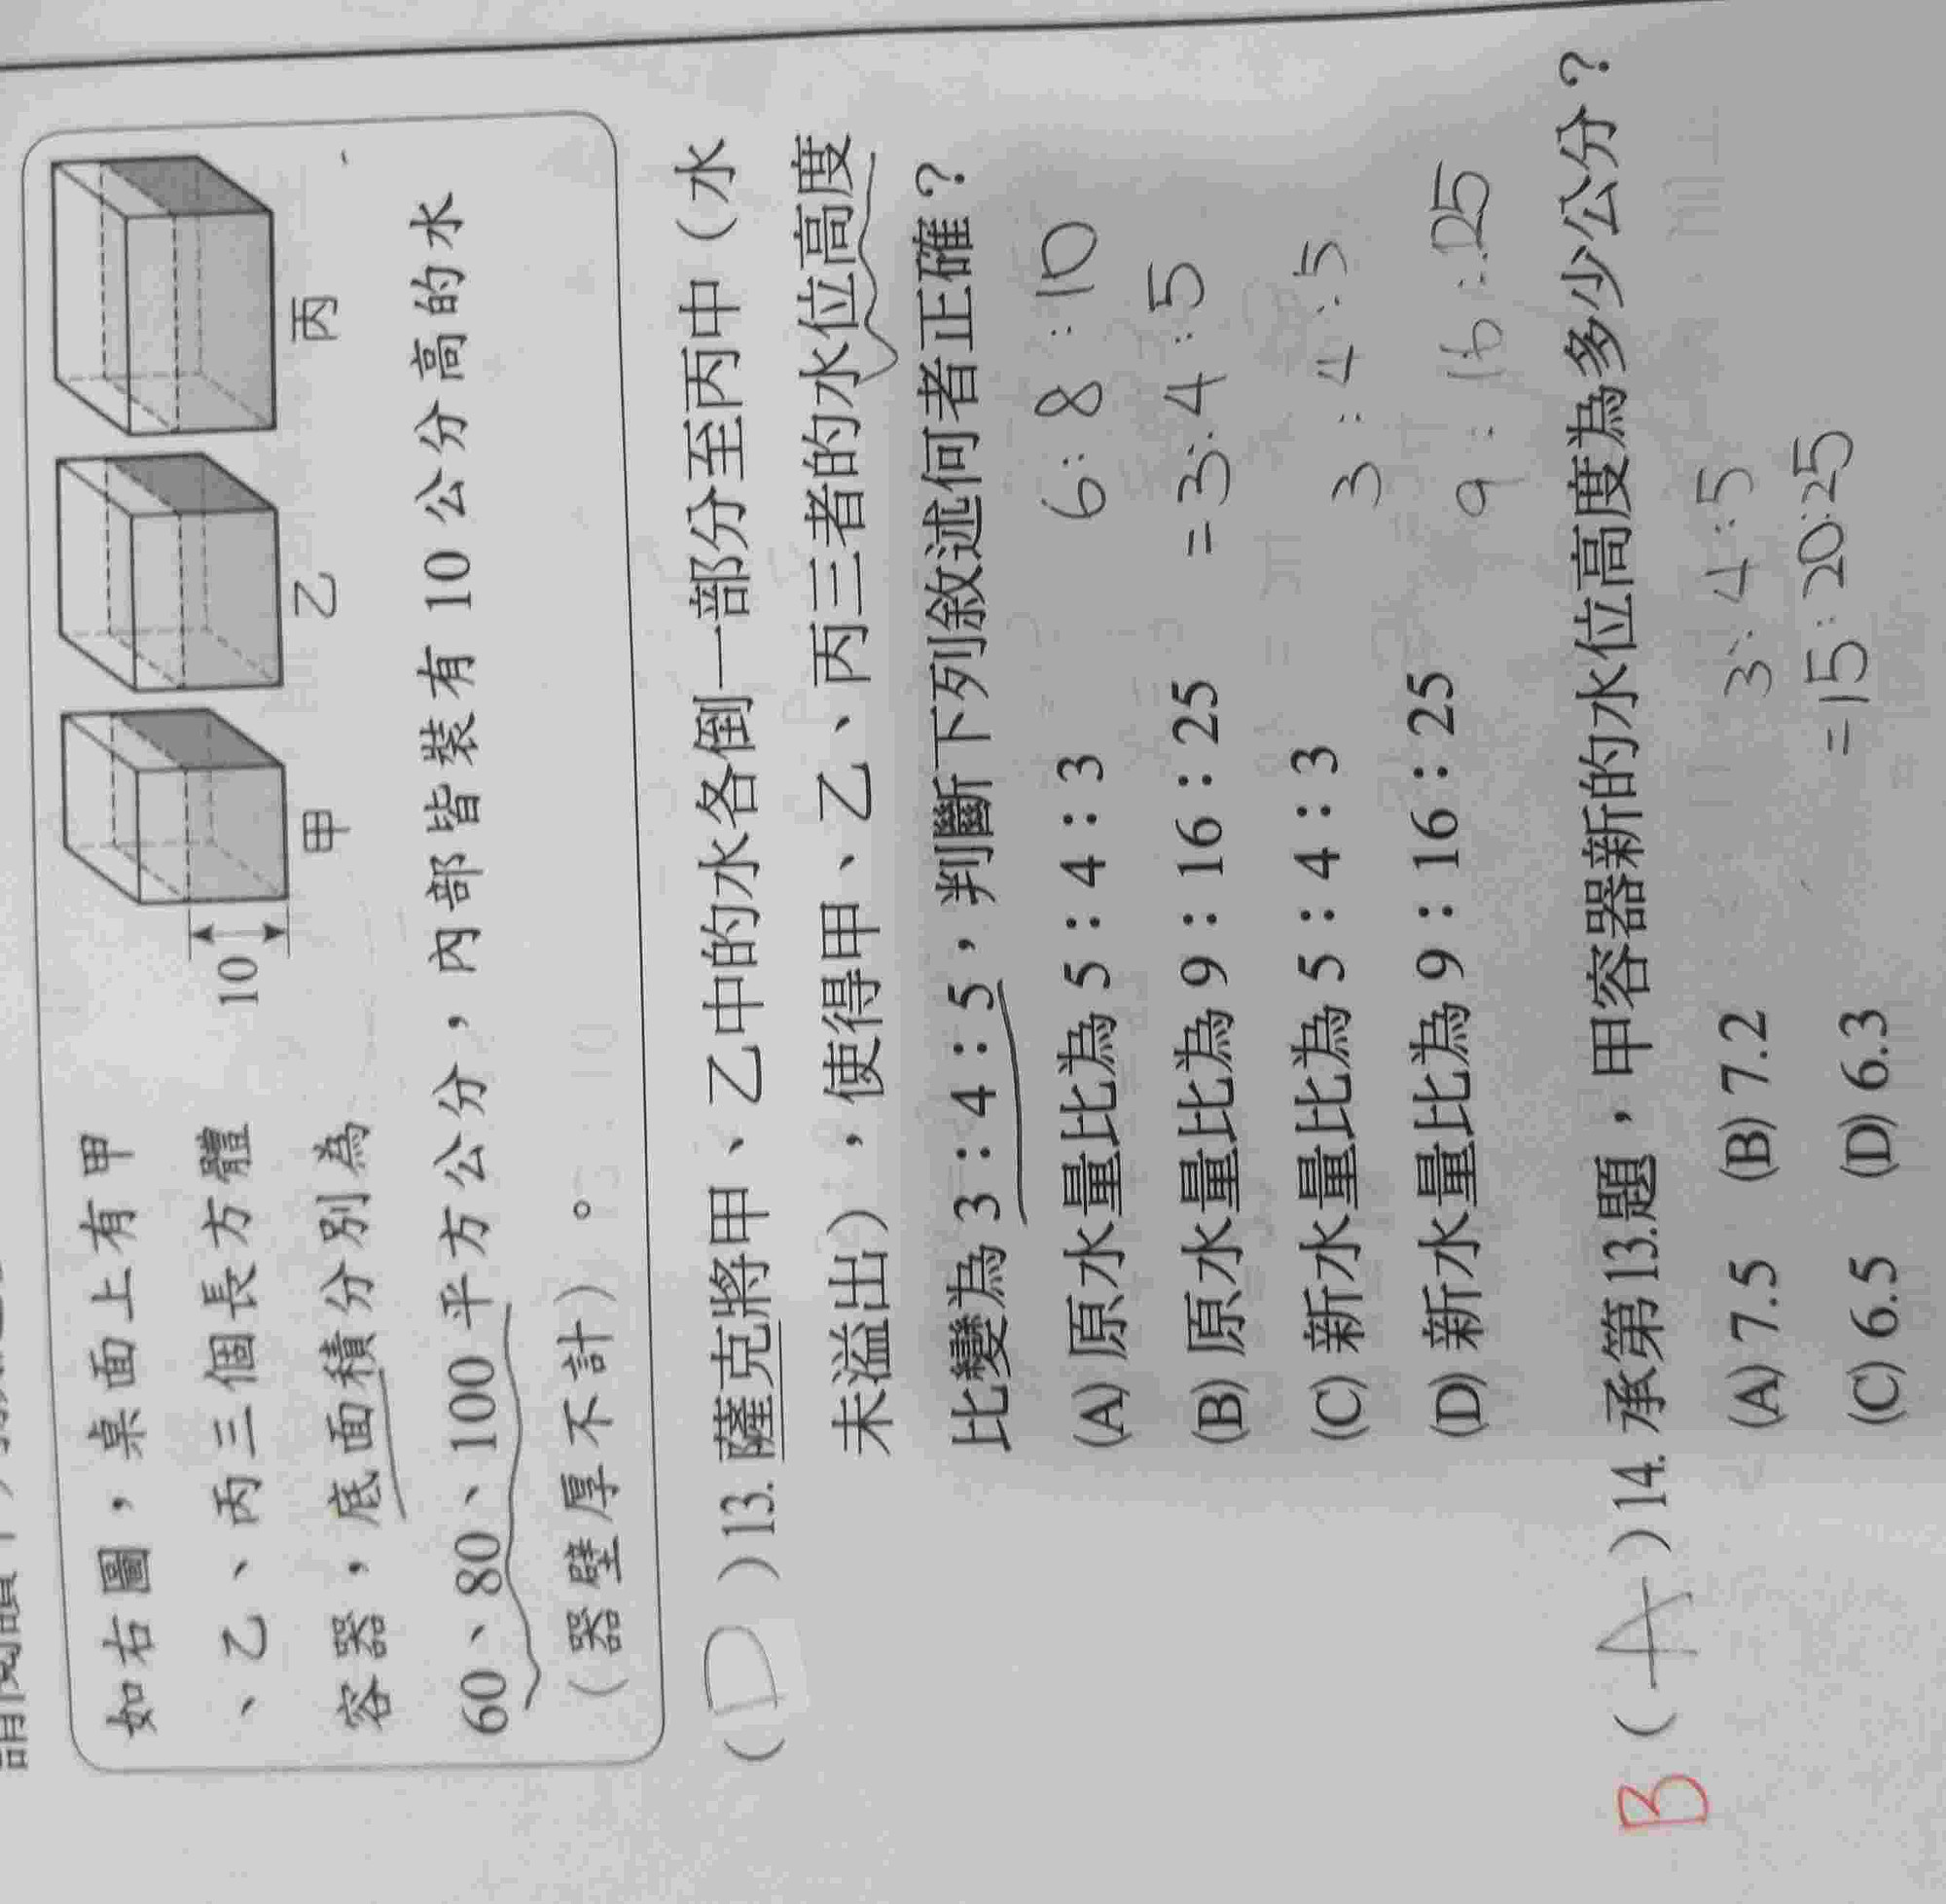 如右圖，桌面上有甲
、乙、丙三個長方體
容器，底面積分別為
60、80、100 平方公分，內部皆裝有 10 公分高的水
（器壁厚不計）。
10
甲
乙
丙
( D )13. 薩克將甲、乙中的水各倒一部分至丙中（水
未溢出），使得甲、乙、丙三者的水位高度
比變為 3：4：5，判斷下列敘述何者正確？
(A) 原水量比為 5：4：3
(B) 原水量比為 9：16：25
(C) 新水量比為 5：4：3
(D) 新水量比為 9：16：25
6:8:10
=3:4:5
3:4:5
9:16:25
B ( A )14. 承第13.題，甲容器新的水位高度為多少公分？
(A) 7.5 (B) 7.2
(C) 6.5 (D) 6.3
3:4:5
=15:20:25